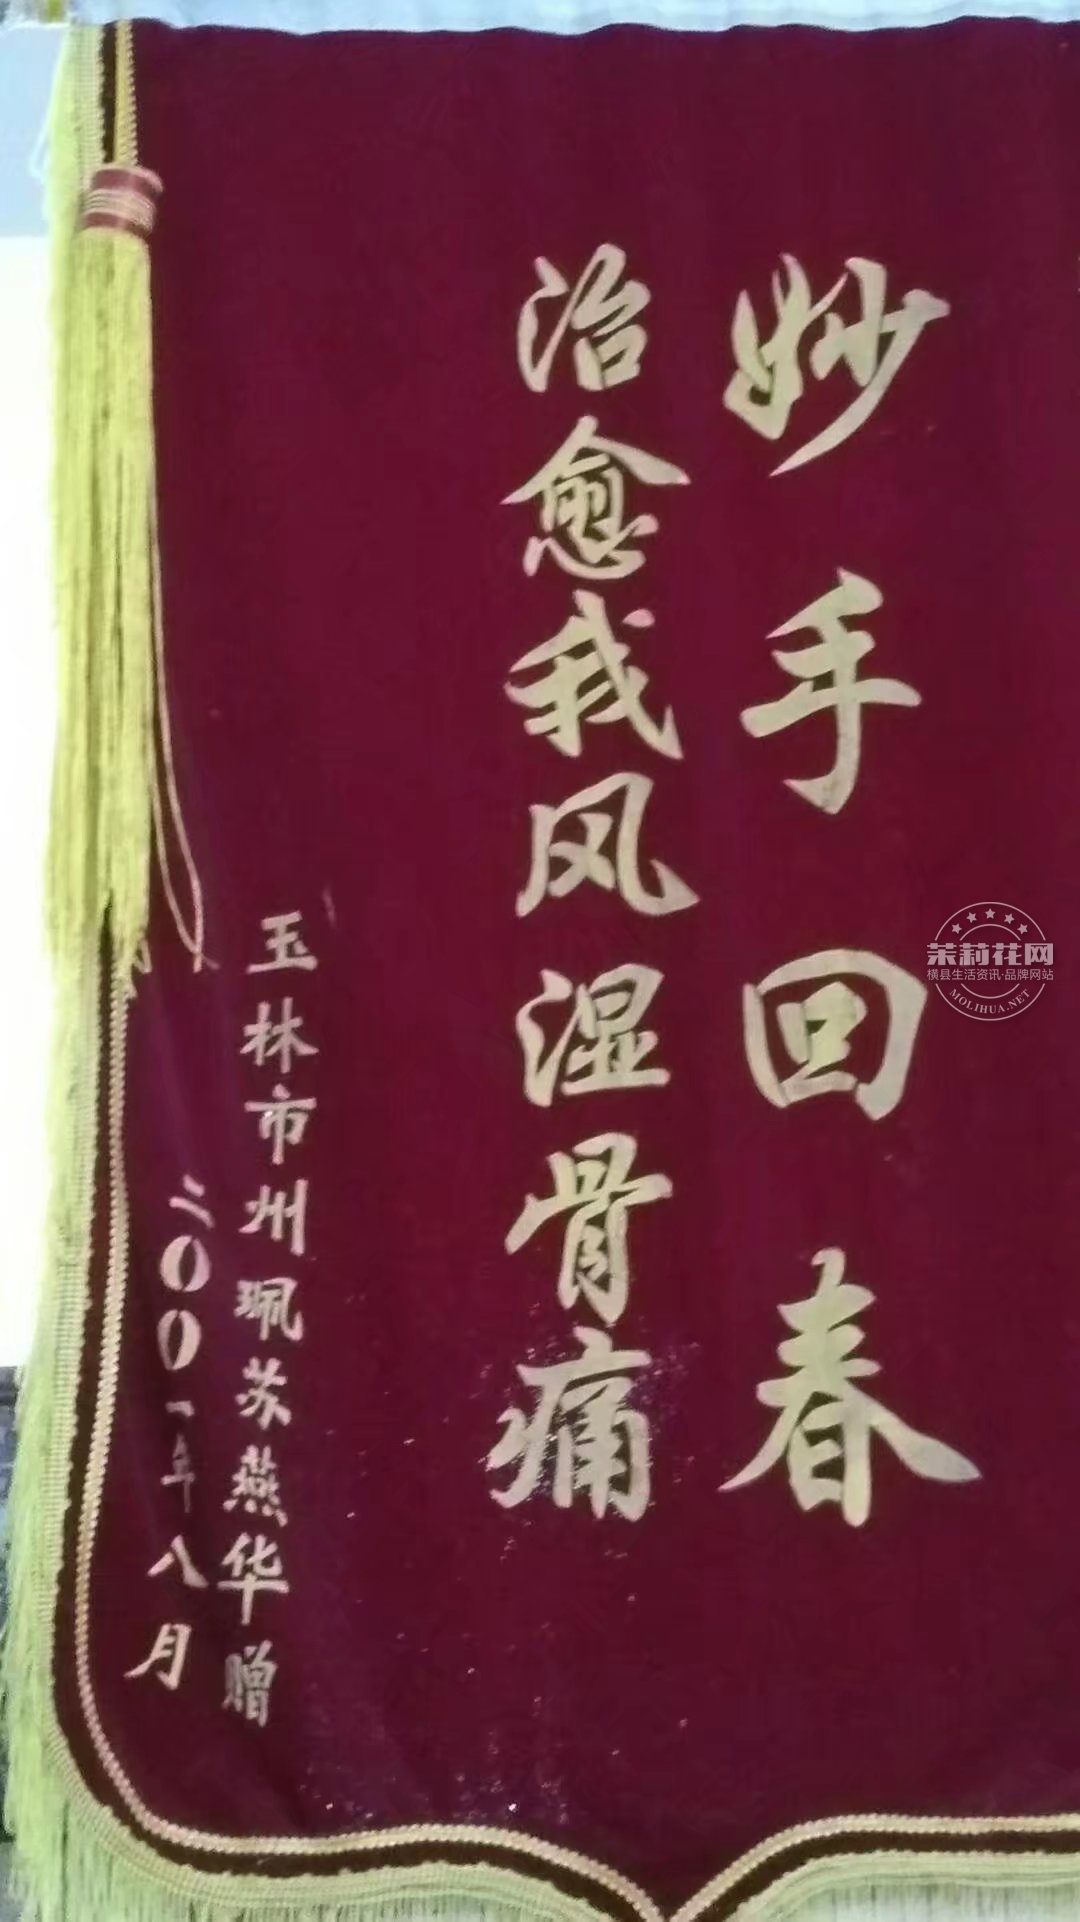 妙手回春
治愈我风湿骨痛
玉林市州珮苏燕华赠
二00一年八月
茉莉花网
横县生活资讯·品牌网站
MOLIHUA.NET